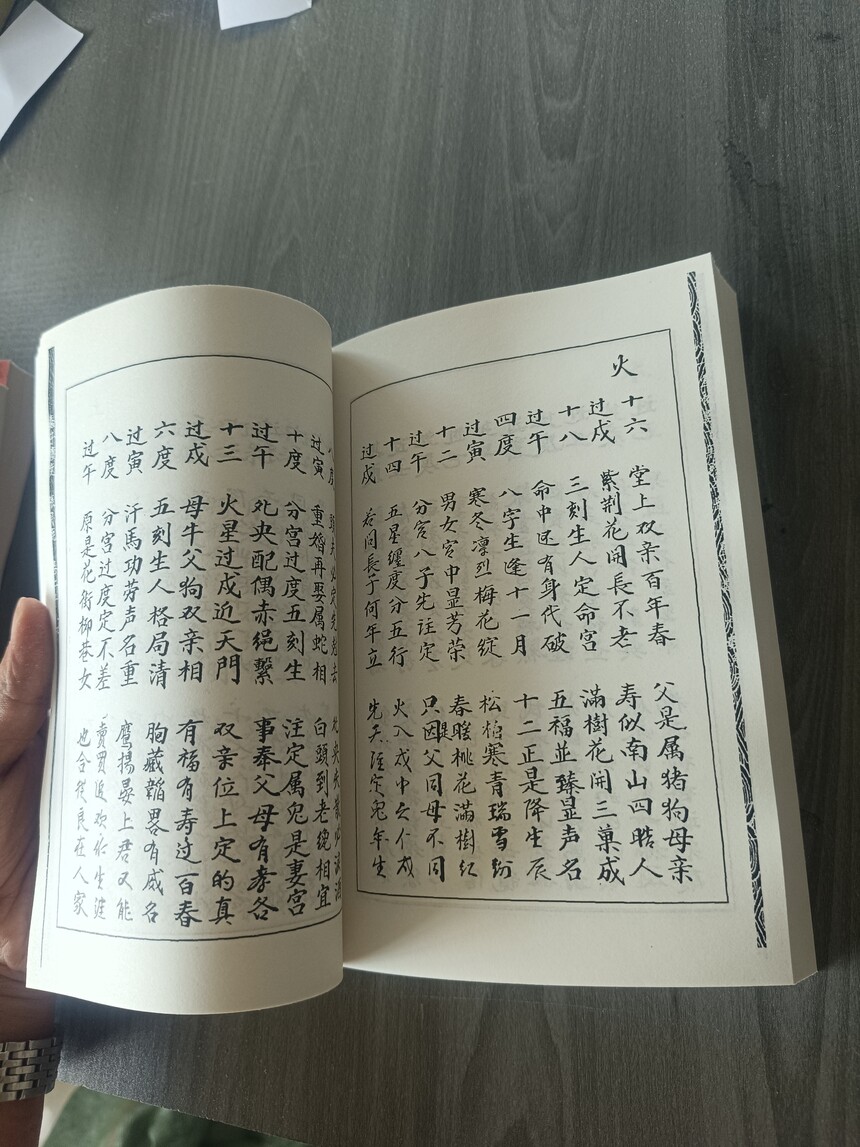 火
十六 堂上双亲百年春 父是属猪狗母亲
过戍 紫荆花開長不老 寿似南山四皓人
十八 三刻生人定命宫 滿樹花開三菓成
过午 命中还有身代破 五福並臻显声名
四度 八字生逢十一月 十二正是降生辰
过寅 寒冬凛烈梅花綻 松柏寒青瑞雪纷
十二 男女宫中显芳荣 春暖桃花滿樹红
过午 分宫八子先注定 只因父同母不同
十四 五星纏度分五行 火入戍中之个成
过戍 若问長子何年立 先天注定兔年生
过寅 重婚再娶属蛇相 白頭到老绕相宜
十度 分宫过度五刻生 注定属兔是妻宫
过午 夗央配偶赤绳繫 事奉父母有孝各
十三 火星过戍近天門 双亲位上定的真
过戍 母牛父狗双亲相 有福有寿过百春
六度 五刻生人格局清 胸藏韜畧有威名
过寅 汗馬功劳声名重 鹰揚晏上君又能
八度 分宫过度定不差 賣買追欢作生涯
过午 原是花街柳巷女 也合從良在人家